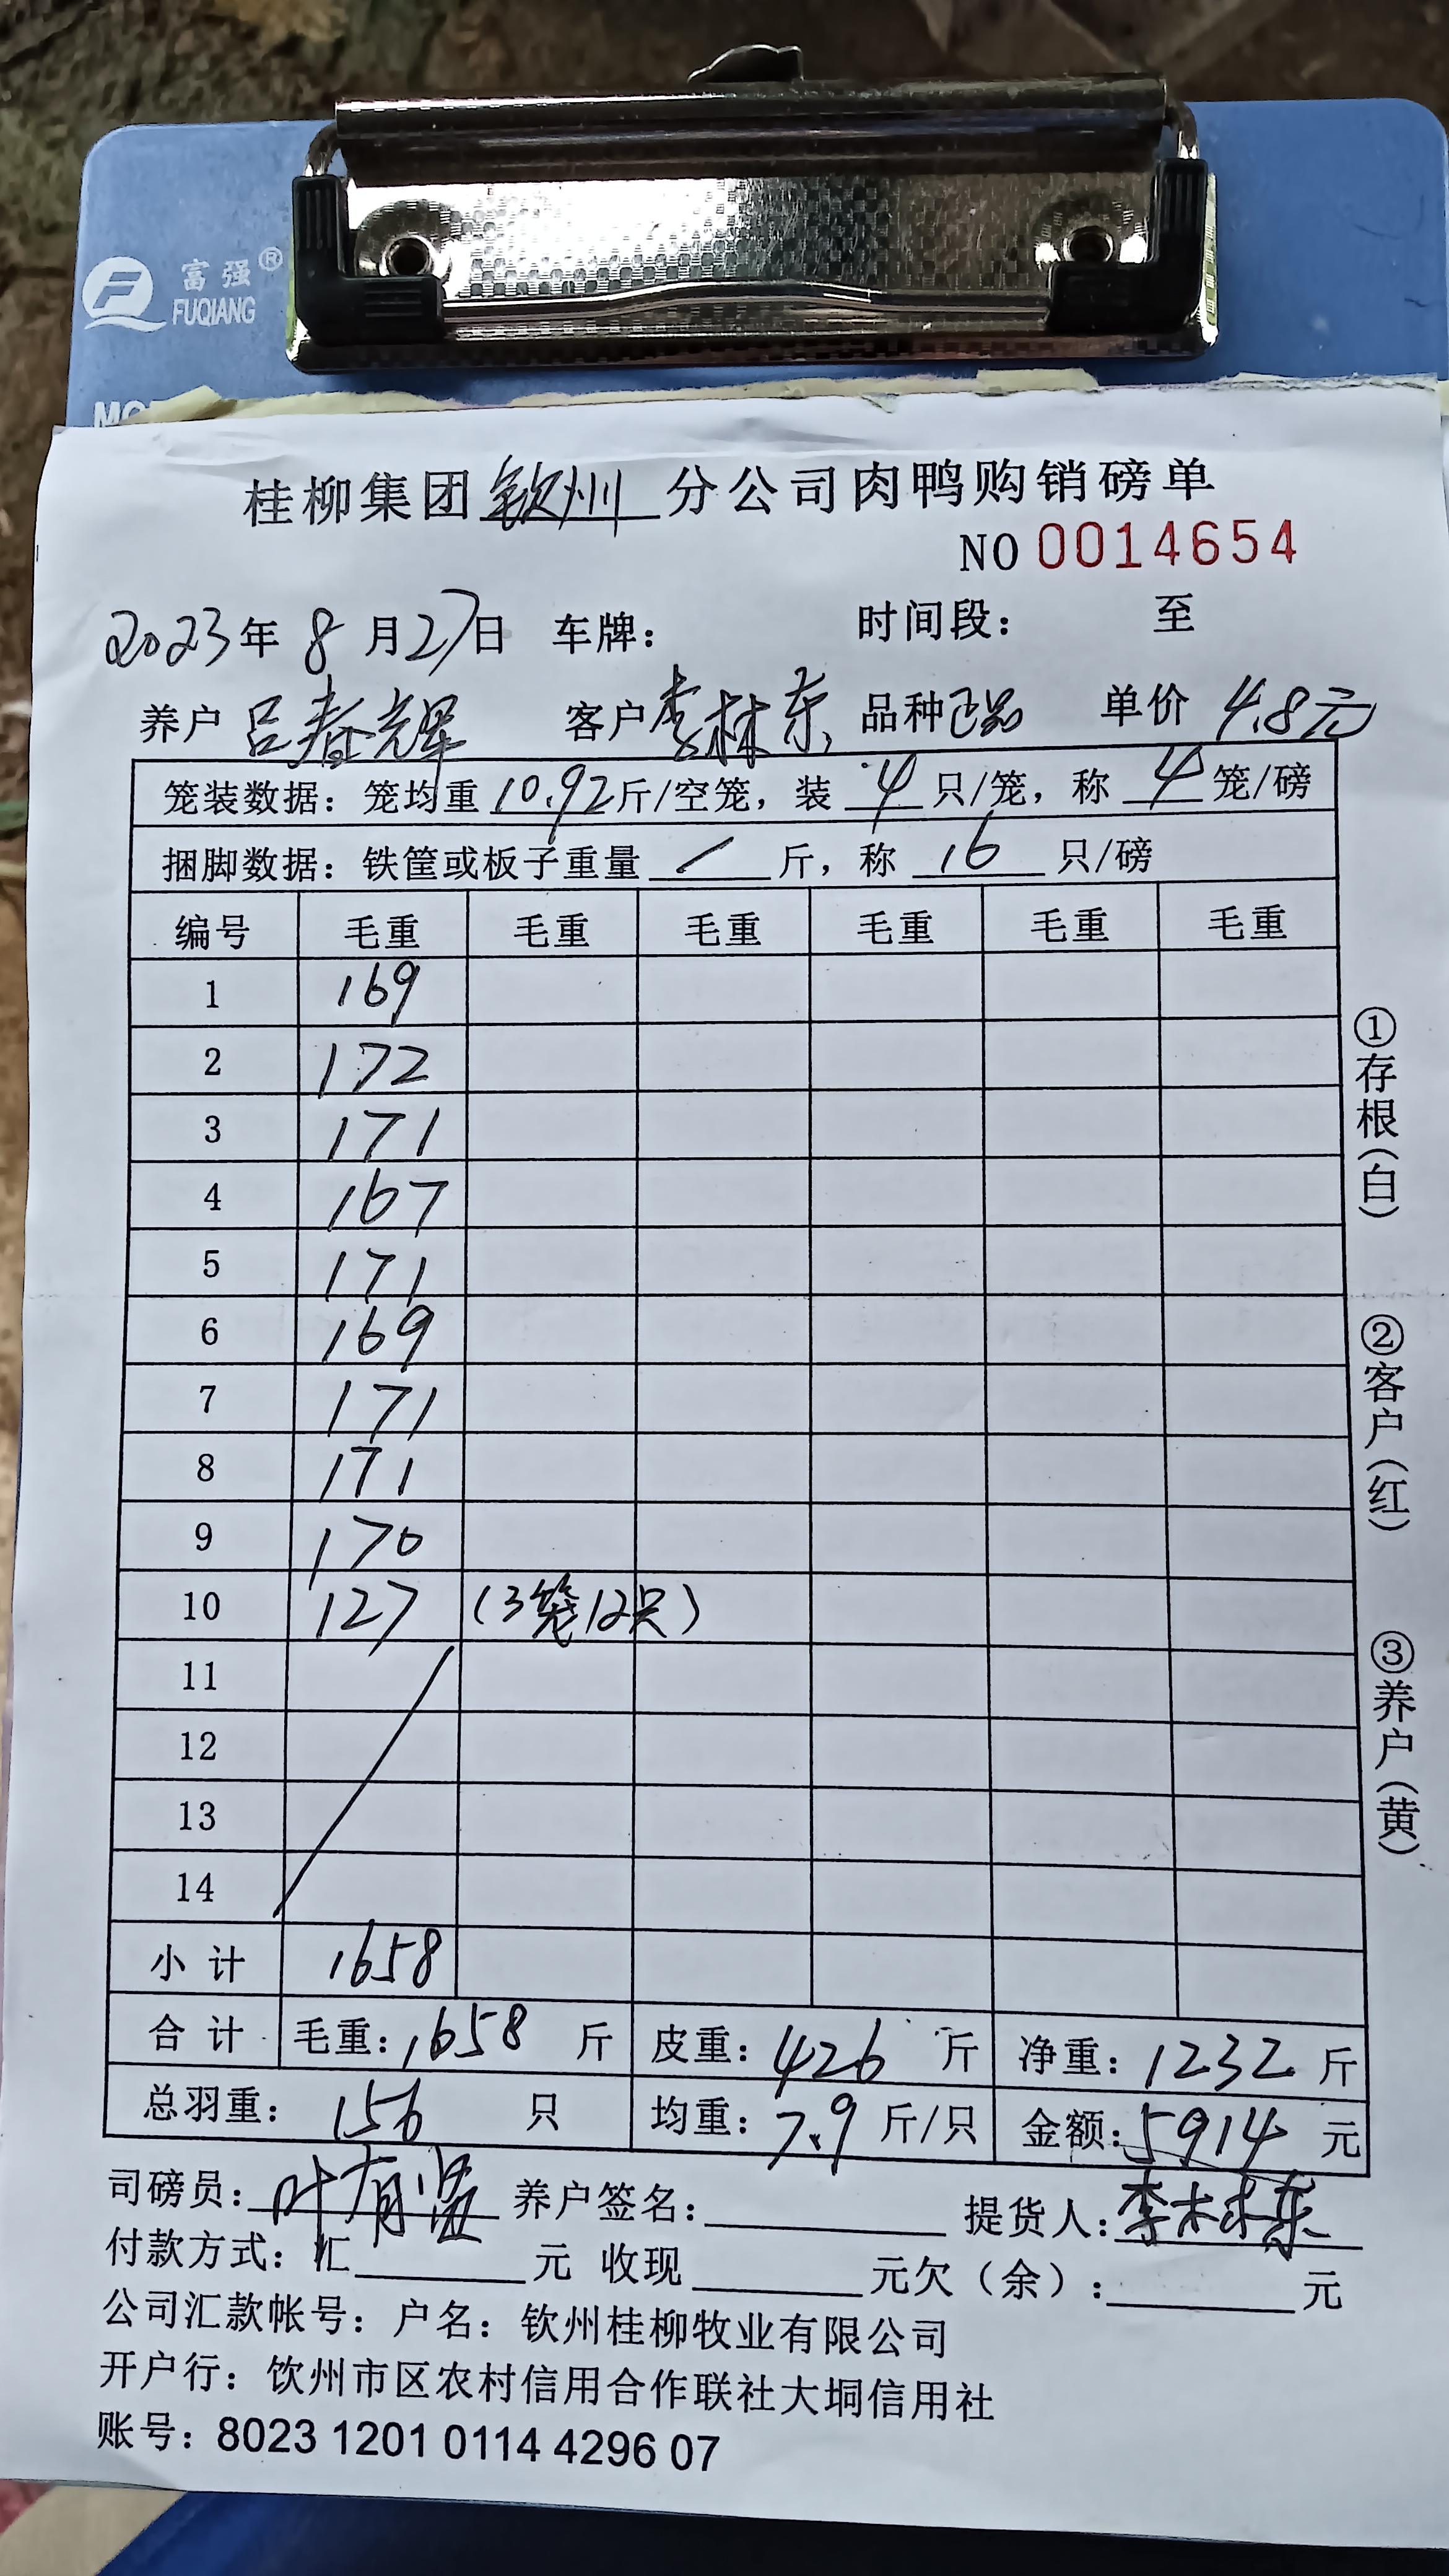 富强®
FUQIANG
桂柳集团钦州分公司肉鸭购销磅单
NO 0014654
2023年 8月27日 车牌： 时间段： 至
养户 吕春辉 客户 李林东 品种 正品 单价 4.8元
笼装数据：笼均重 10.92 斤/空笼，装 4 只/笼，称 4 笼/磅
捆脚数据：铁筐或板子重量 / 斤，称 16 只/磅
编号 毛重 毛重 毛重 毛重 毛重 毛重
1 169
2 172
3 171
4 167
5 171
6 169
7 171
8 171
9 170
10 127 (3笼12只)
11
12
13
14
小计 1658
合计 毛重：1658 斤 皮重：426 斤 净重：1232 斤
总羽重：156 只 均重：7.9 斤/只 金额：5914 元
司磅员：叶有 养户签名： 提货人：李林东
付款方式：汇 元 收现 元欠（余）： 元
公司汇款帐号：户名：钦州桂柳牧业有限公司
开户行：钦州市区农村信用合作联社大垌信用社
账号：8023 1201 0114 4296 07
①存根（白）
②客户（红）
③养户（黄）